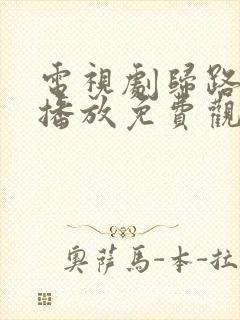 電視劇歸路
播放免費觀
奧薩馬-本-拉